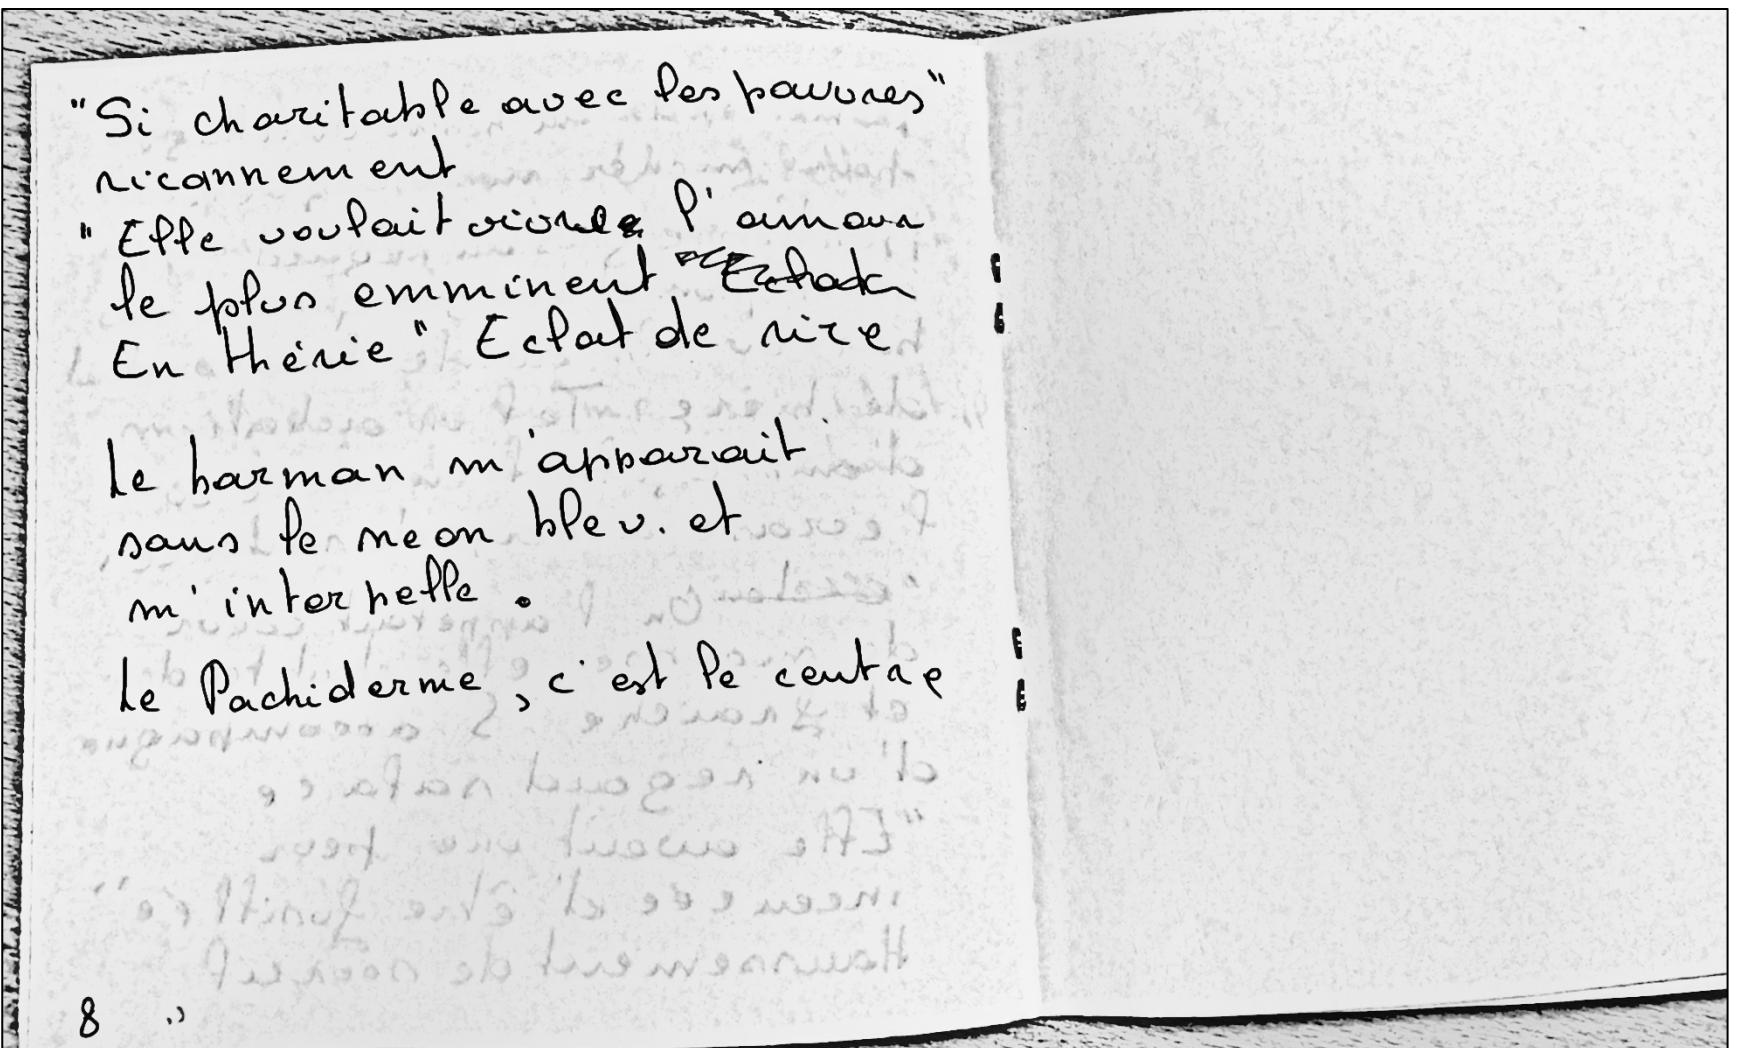 "Si charitable avec les pauvres"
ricannement
"Elle voulait vivre l'amour
le plus emminent
En thérie" Eclat de rire
Le barman m'apparait
sous le neon bleu. et
m'interpelle.
Le Pachiderme, c'est le centre
8